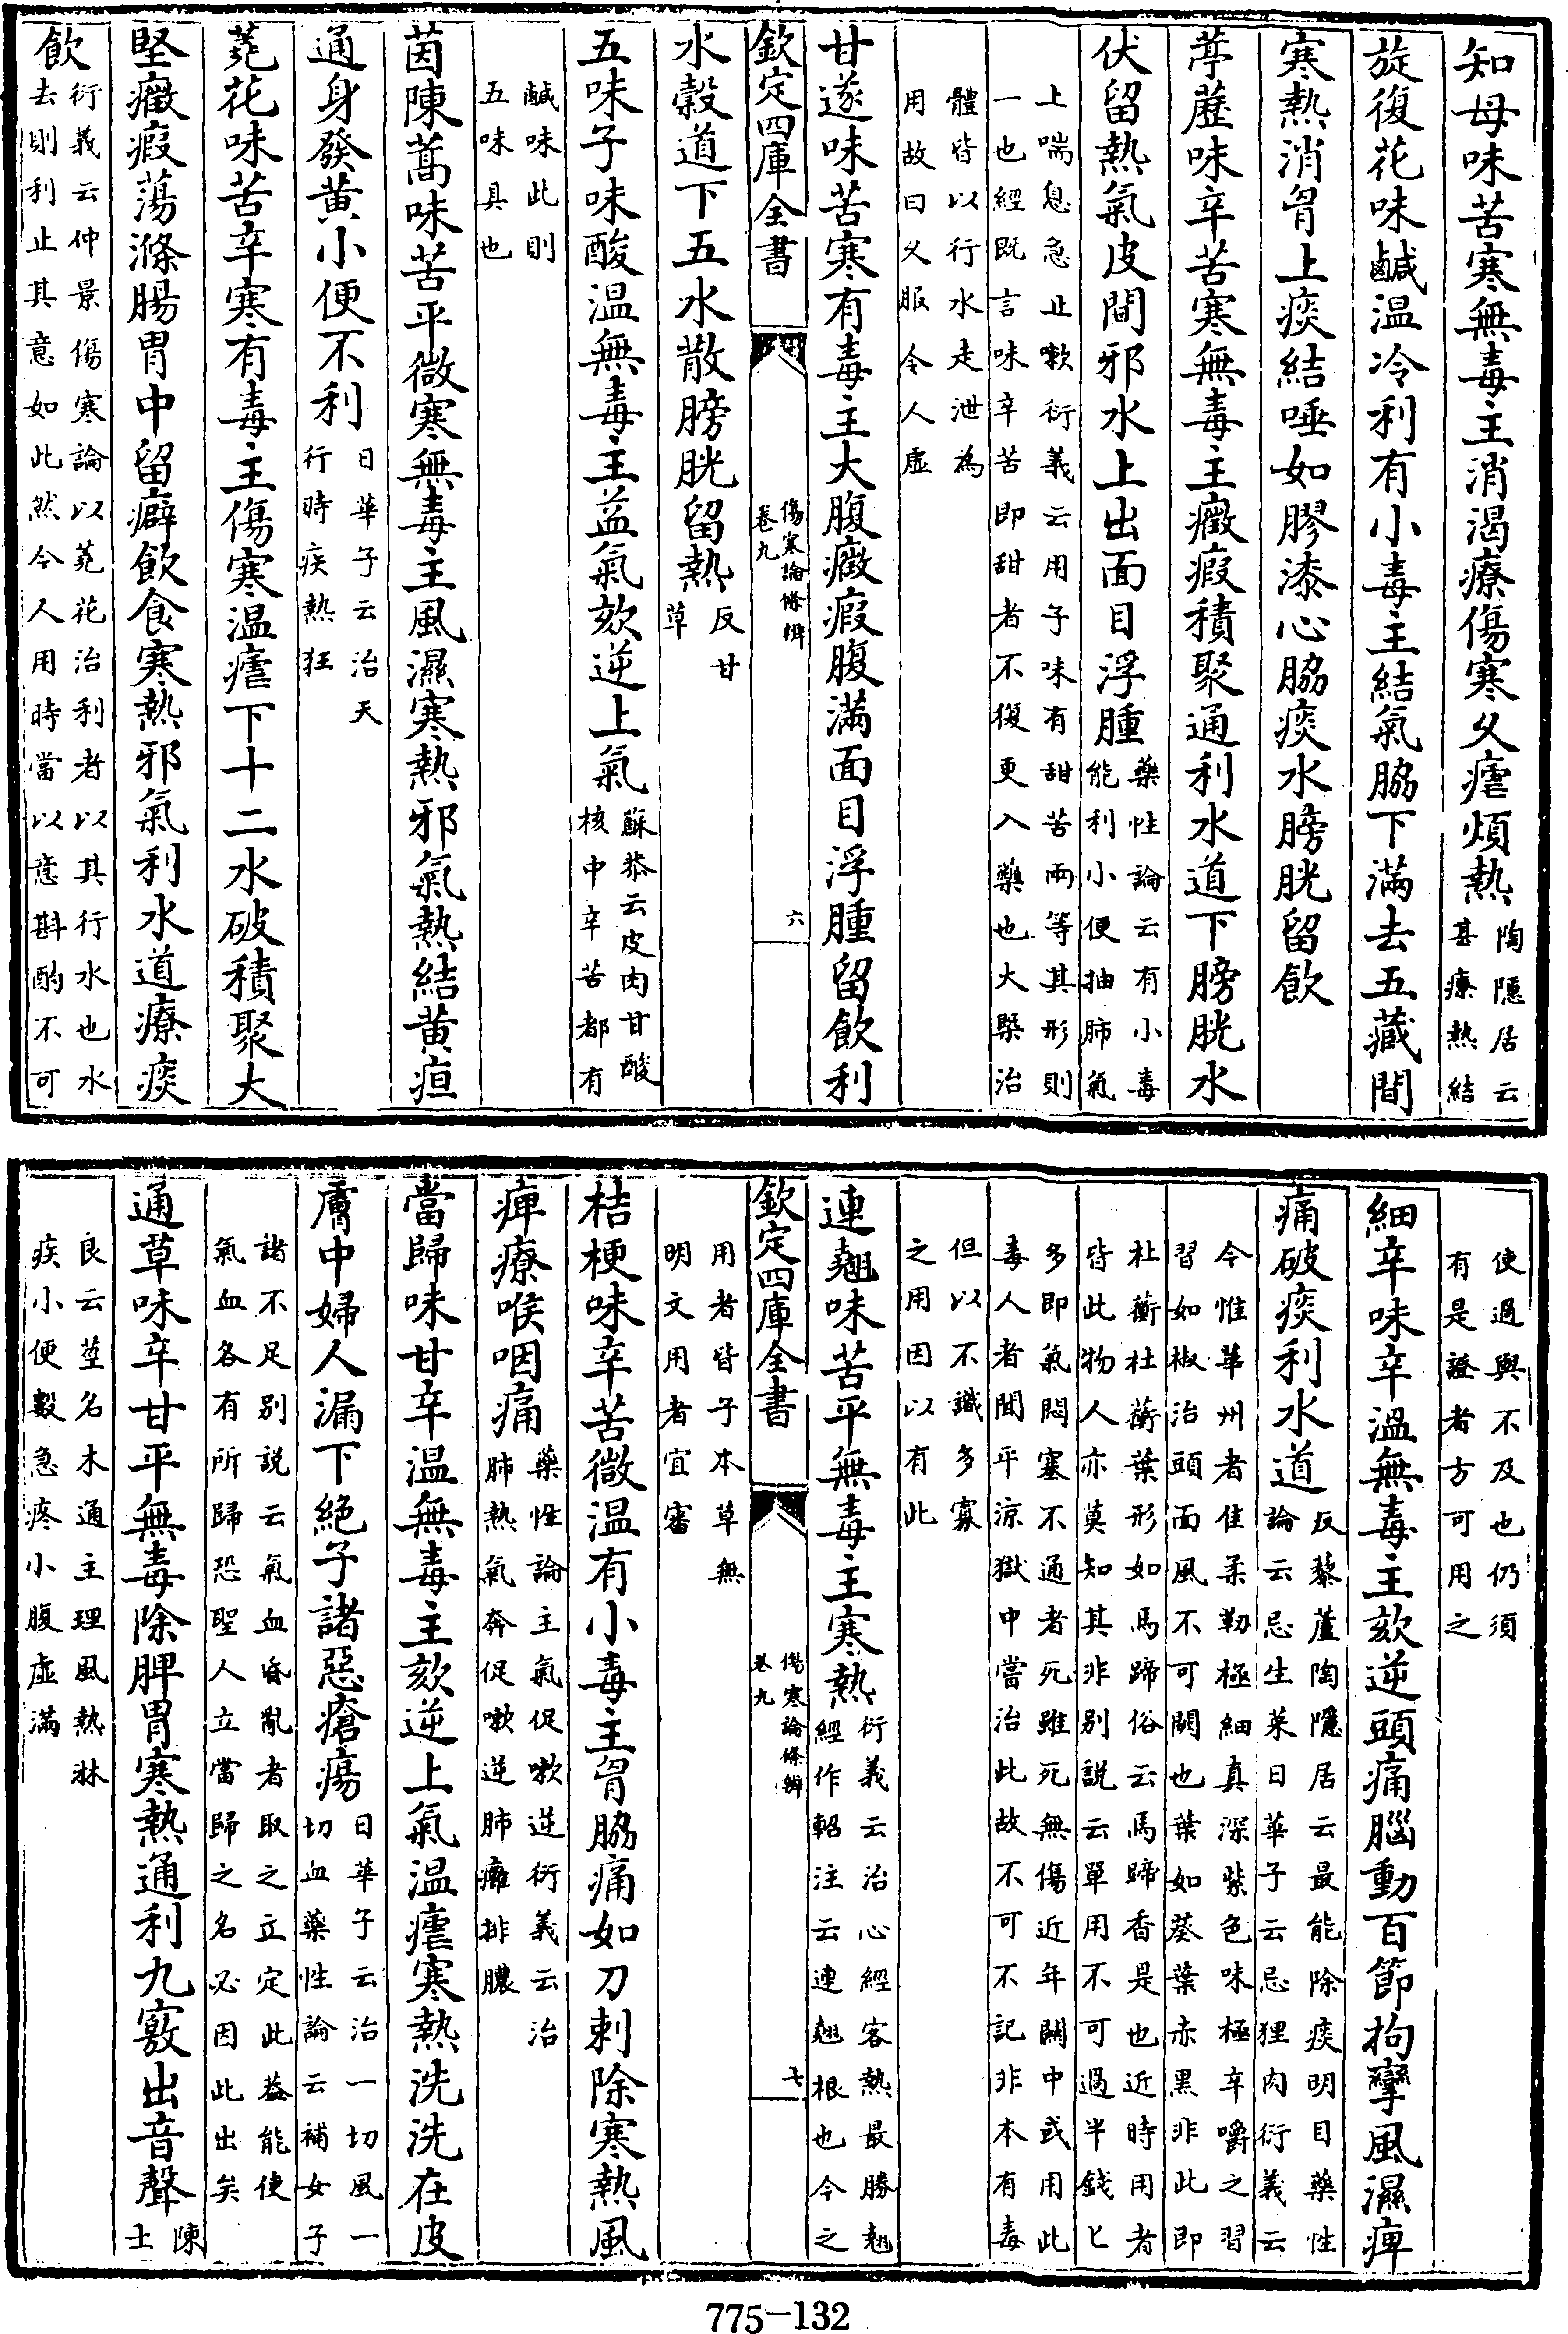 知母味苦寒無毒主消渴療傷寒乆瘧煩熱陶隱居云甚療熱結
旋復花味鹹温冷利有小毒主結氣脇下滿去五藏間
寒熱消胷上痰結唾如膠漆心脇痰水膀胱留飲
葶藶味辛苦寒無毒主癥瘕積聚通利水道下膀胱水
伏留熱氣皮間邪水上出面目浮腫藥性論云有小毒能利小便抽肺氣
上喘息急止嗽衍義云用子味有甜苦兩等其形則一也經既言味辛苦即甜者不復更入藥也大槩治
體皆以行水走泄為用故曰乆服令人虛
甘遂味苦寒有毒主大腹癥瘕腹滿面目浮腫留飲利
欽定四庫全書 傷寒論條辨 卷九 六
水穀道下五水散膀胱留熱反甘草
五味子味酸温無毒主益氣欬逆上氣蘇恭云皮肉甘酸核中辛苦都有
鹹味此則五味具也
茵陳蒿味苦平微寒無毒主風濕寒熱邪氣熱結黄疸
通身發黄小便不利日華子云治天行時疾熱狂
芫花味苦辛寒有毒主傷寒温瘧下十二水破積聚大
堅癥瘕蕩滌腸胃中留癖飲食寒熱邪氣利水道療痰
飲衍義云仲景傷寒論以芫花治利者以其行水也水去則利止其意如此然今人用時當以意斟酌不可
使過與不及也仍須有是證者方可用之
細辛味辛溫無毒主欬逆頭痛腦動百節拘攣風濕痺
痛破痰利水道反藜蘆陶隱居云最能除痰明目藥性論云忌生菜日華子云忌狸肉衍義云
今惟華州者佳柔韌極細真深紫色味極辛嚼之習習如椒治頭面風不可闕也葉如葵葉赤黑非此即
杜蘅杜蘅葉形如馬蹄俗云馬蹄香是也近時用者皆此物人亦莫知其非别説云單用不可過半錢匕
多即氣悶塞不通者死雖死無傷近年關中或用此毒人者聞平凉獄中嘗治此故不可不記非本有毒
但以不識多寡之用因以有此
連翹味苦平無毒主寒熱衍義云治心經客熱最勝翹經作軺注云連翹根也今之
欽定四庫全書 傷寒論條辨 卷九 七
用者皆子本草無明文用者宜審
桔梗味辛苦微温有小毒主胷脇痛如刀刺除寒熱風
痺療喉咽痛藥性論主氣促嗽逆衍義云治肺熱氣奔促嗽逆肺癰排膿
當歸味甘辛温無毒主欬逆上氣温瘧寒熱洗洗在皮
膚中婦人漏下絶子諸惡瘡瘍日華子云治一切風一切血藥性論云補女子
諸不足别説云氣血昏亂者取之立定此葢能使氣血各有所歸恐聖人立當歸之名必因此出矣
通草味辛甘平無毒除脾胃寒熱通利九竅出音聲陳士
良云莖名木通主理風熱淋疾小便數急疼小腹虛滿
775-132